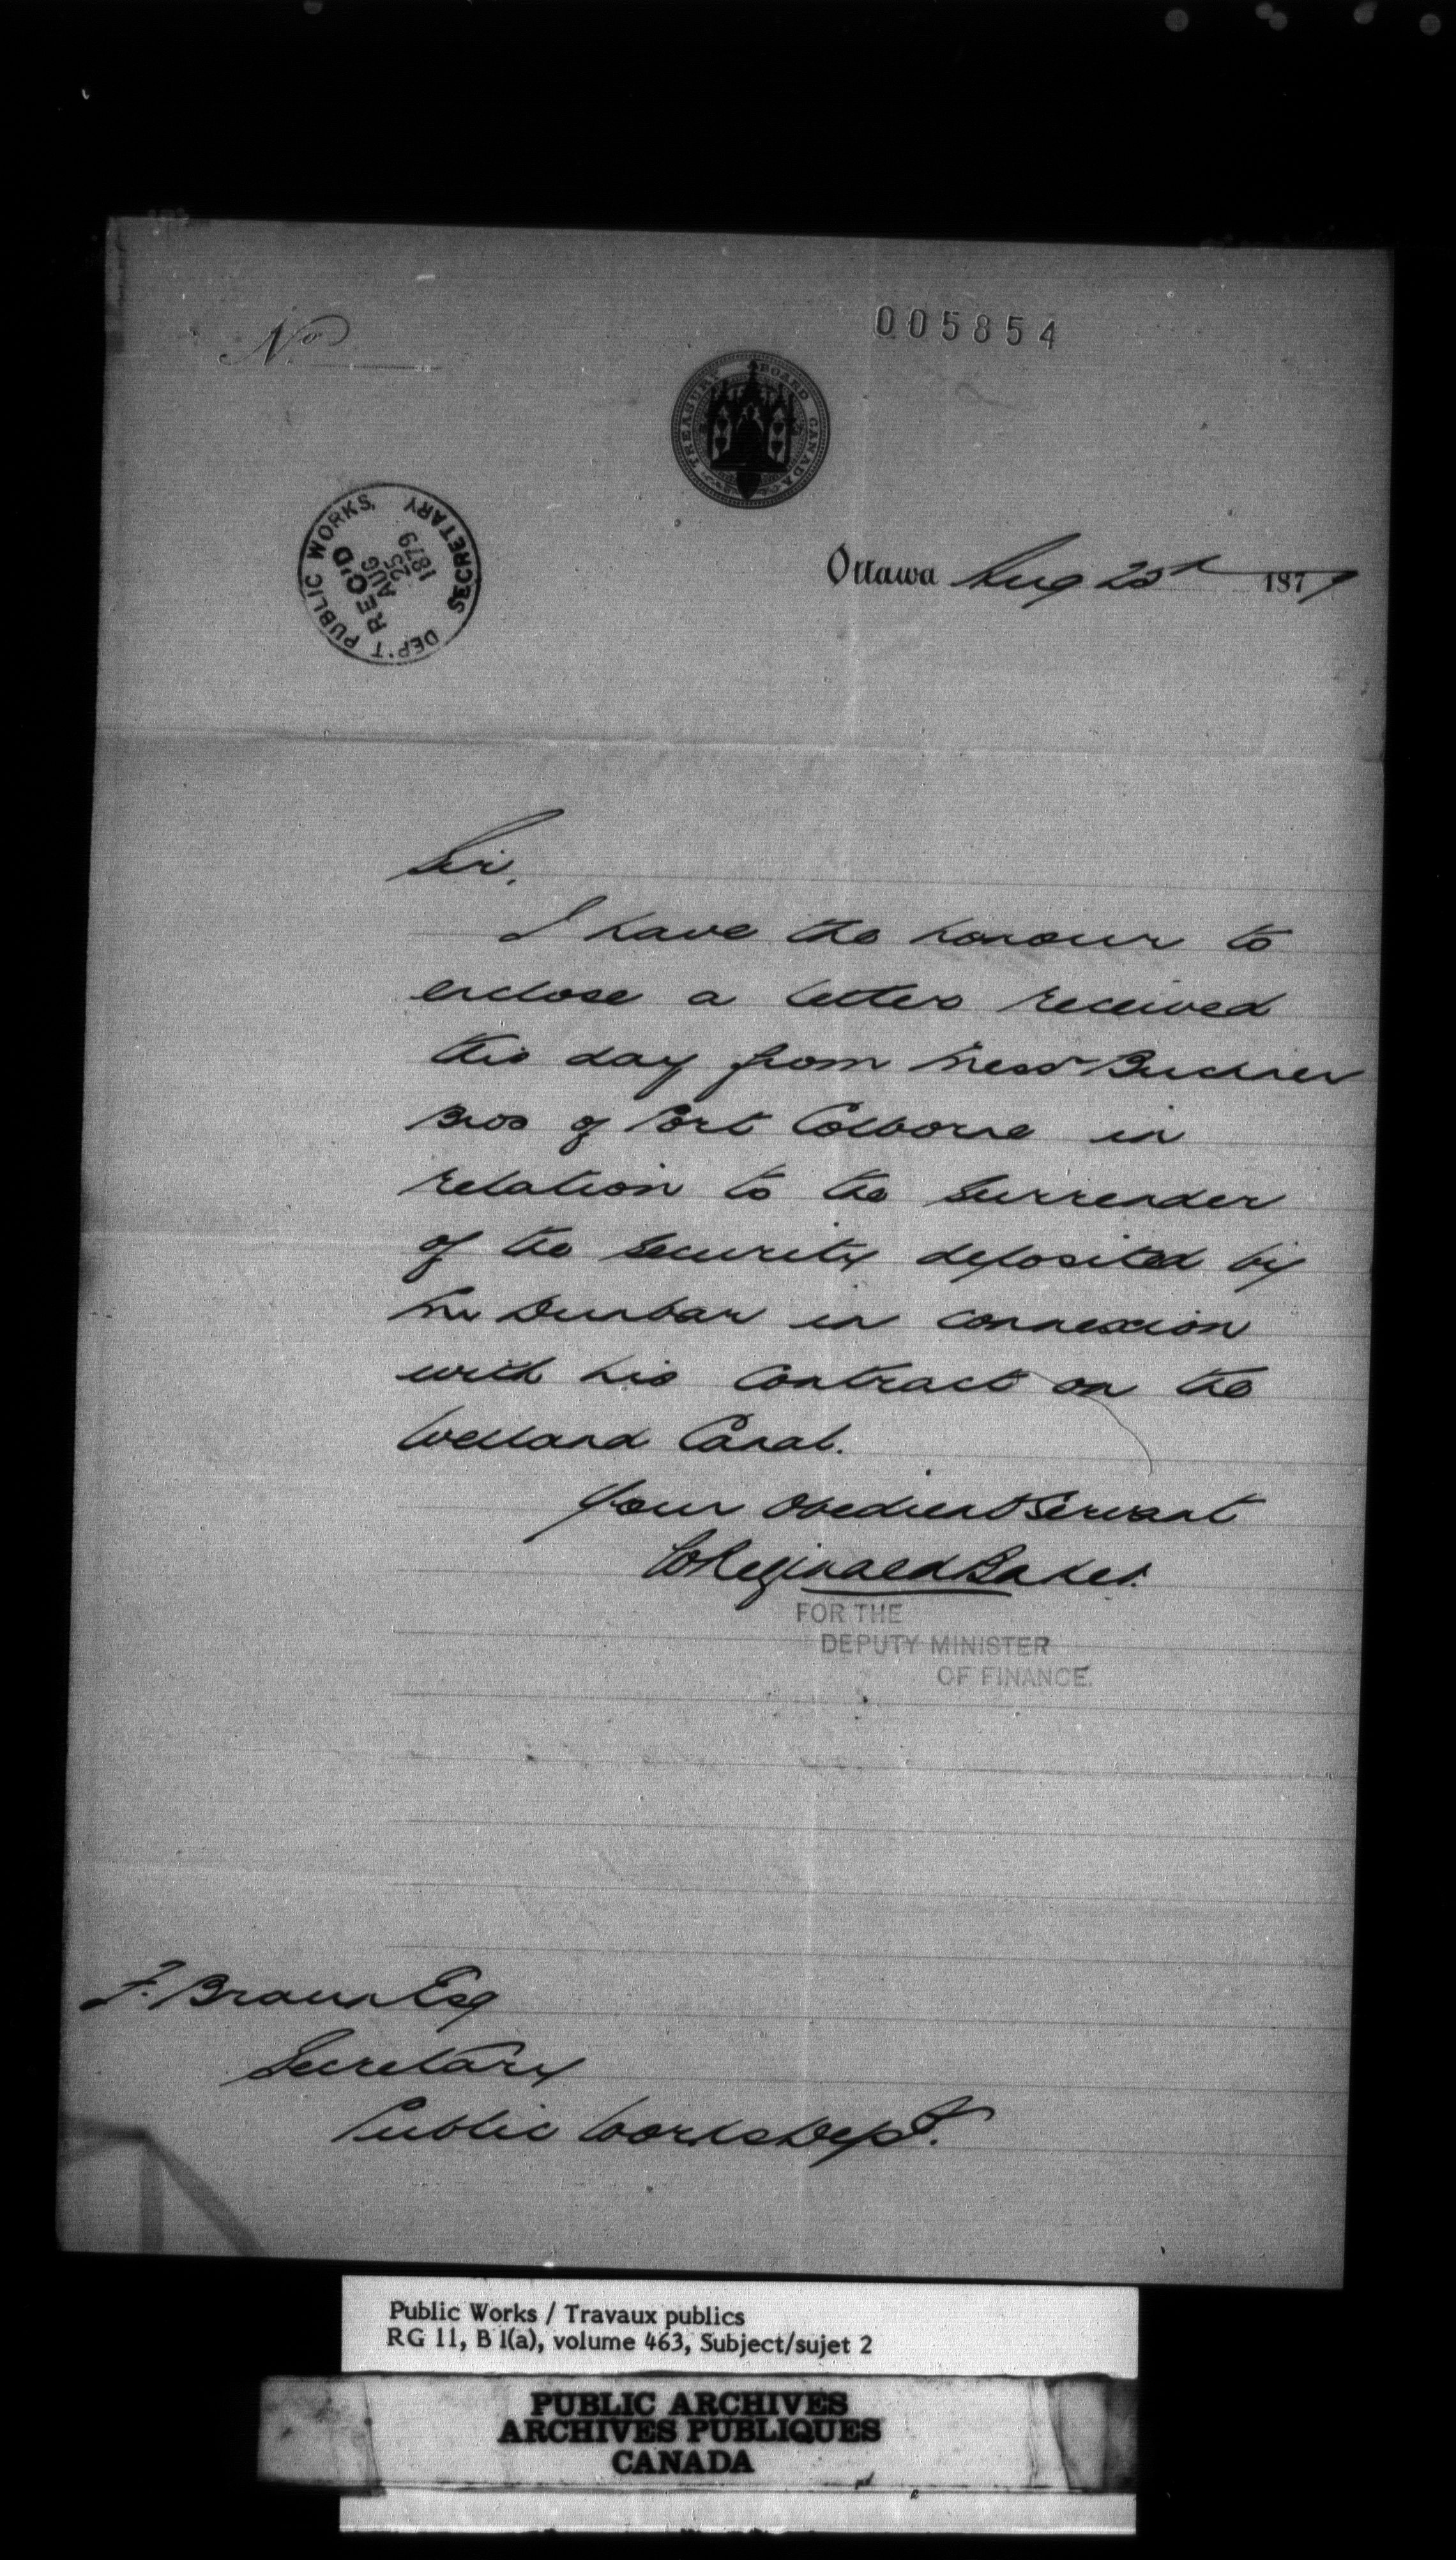 No
005854
TREASURY BOARD CANADA
DEP'T PUBLIC WORKS, SECRETARY
REC'D
AUG
25
1879
Ottawa Aug 25th 1879
Sir,
I have the honour to
enclose a letter received
this day from Messrs Buchner
Bros of Port Colborne in
relation to the surrender
of the security deposited by
Mr Dunbar in connexion
with his contract on the
Welland Canal.
Your Obedient Servant
Reginald Baker
FOR THE
DEPUTY MINISTER
OF FINANCE.
F. Braun Esq
Secretary
Public Works Dept.
Public Works / Travaux publics
RG 11, B 1(a), volume 463, Subject/sujet 2
PUBLIC ARCHIVES
ARCHIVES PUBLIQUES
CANADA